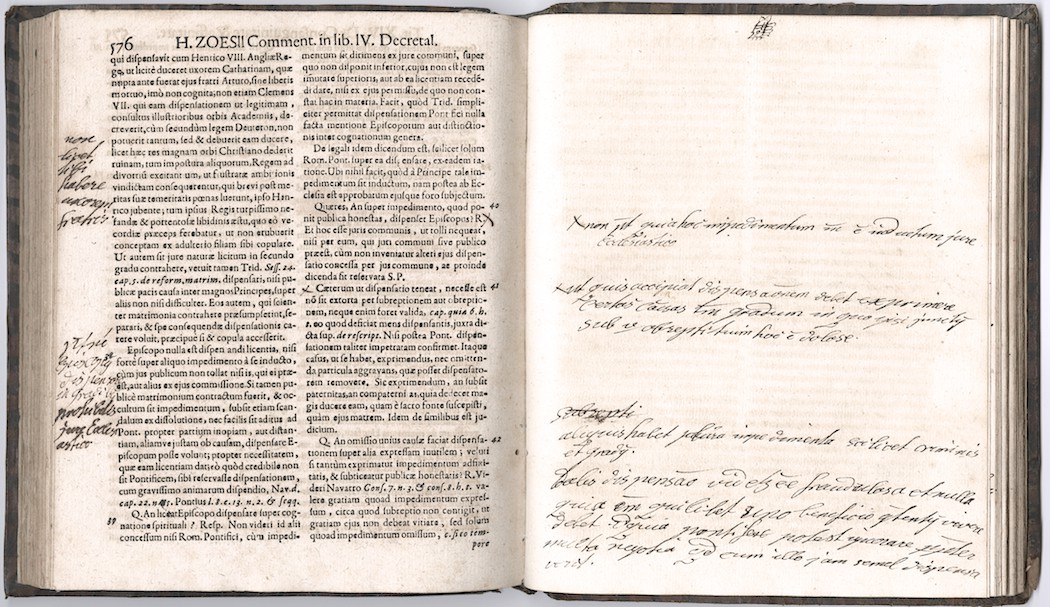 576
H. ZOESII Comment. in lib. IV. Decretal.
qui dispensavit cum Henrico VIII. Angliæ Re-
ge, ut licitè duceret uxorem Catharinam, quæ
nupta ante fuerat ejus fratri Arturo, sine liberis
mortuo, imò non cognita; non etiam Clemens
VII. qui eam dispensationem ut legitimam,
consultus illustrioribus orbis Academiis, de-
creverit, cùm secundùm legem Deuteron, non
potuerit tantum, sed & debuerit eam ducere,
licet hæc res magnam orbi Christiano dederit
ruinam, tum impostura aliquorum, Regem ad
divortiũ exeritant um, ut frustratæ ambitionis
vindictam consequerentur, qui brevi post me-
ritas suæ temeritatis pœnas luerunt, ipso Hen-
rico jubente; tum ipsius Regis turpissimo ne-
fandæ & portentosæ libidinis æstu, quo eò ve-
cordiæ præceps ferebatur, ut non erubuerit
conceptam ex adulterio filiam sibi copulare.
Ut autem sit jure naturæ licitum in secundo
gradu contrahere, vetuit tamen Trid. Sess. 24.
cap. 5. de reform. matrim. dispensati, nisi pu-
blicæ pacis causa inter magnos Principes, super
aliis non nisi difficulter. Eos autem, qui scien-
ter matrimonia contrahere præsumpserint, se-
parari, & spe consequendæ dispensationis ca-
rere voluit, præcipuè si & copula accesserit.
Episcopo nulla est dispen andi licentia, nisi
fortè super aliquo impedimento à se inducto,
cùm jus publicum non tollat nisi is, qui ei præ-
est, aut alius ex ejus commissione. Si tamen pu-
blicè matrimonium contractum fuerit, & oc-
cultum sit impedimentum, subsit etiam scan-
dalum ex dissolutione, nec facilis sit aditus ad
Pont. propter partium inopiam, aut distan-
tiam, aliamve justam ob causam, dispensare E-
piscopum posse volunt; propter necessitatem,
quæ eam licentiam dat; eò quòd credibile non
sit Pontificem, sibi reservasse dispensationem,
cum gravissimo animarum dispendio, Nav. d.
cap. 22. n. 85. Pontius l. 8. c. 13. n. 2. & seqq.
39
Q. An liceat Episcopo dispensare super cog-
natione spirituali? Resp. Non videri id alii
concessum nisi Rom. Pontifici, cùm impedi-
mentum sit dirimens ex jure communi, super
quo non disponit inferior, cujus non est legem
imutare superioris, aut ab ea licentiam recedẽ-
di dare, nisi ex ejus permissu, de quo non con-
stat hac in materia. Facit, quòd Trid. simpli-
citer permittat dispensationem Pontifici nulla
facta mentione Episcoporum aut distinctio-
nis inter cognationum genera.
De legali idem dicendum est, scilicet solum
Rom. Pont. super ea dispensare, ex eadem ra-
tione. Ubi nihil facit, quòd à Principe tale im-
pedimentum sit inductum, nam postea ab Ec-
clesia est approbatum ejusque foro subjectum.
40
Quæres, An super impedimento, quod po-
nit publica honestas, dispenset Episcopus? R.
Et hoc esse juris communis, ut tolli nequeat,
nisi per eum, qui juri communi sive publico
præest, cùm non inveniatur alteri ejus dispen-
satio concessa per jus commune, ac proinde
dicenda sit reservata S.P.
41
Cæterum ut dispensatio teneat, necesse est
nõ sit extorta per subreptionem aut obreptio-
nem, neque enim foret valida, cap. quia 6. h.
t. eo quod deficiat mens dispensantis, juxta di-
cta sup. de rescript. Nisi postea Pont. dispensi-
ationem taliter impetraram confirmet. Itaque
casus, ut se habet, exprimendus, nec omitten-
da particula aggravans, quæ posset dispensato-
rem removere. Sic exprimendum, an subsit
paternitas, an compaternitas, quia dedecet ma-
gis ducere eam, quam è sacro fonte suscepisti,
quàm ejus matrem. Idem de similibus est ju-
dicium.
42
Q. An omissio unius causæ faciat dispensa-
tionem super alia expressam inutilem; veluti
si tantùm exprimatur impedimentum affini-
tatis, & subticeatur publicæ honestatis? R. Vi-
deri Navatro Cons. 7. n. 2. & cons. 8. h. t. va-
lere gratiam quoad impedimentum expres-
sum, circa quod subreptio non contigit, ut
gratiam ejus non debeat vitiare, sed solum
quoad impedimentum omissum, c. si eo tem-
pore
non
licet
sibi
habere
uxorem
fratris
x non ꝑt quia hoc impedimentum ... ẽ inductum jure
Ecclesiastico
x ut quis accipiat dispensãonem debet exprimere
sub v obreptitium hoc ẽ dolose.
aliquis habet plura impedimenta scilicet criminis
et gradus.
talis dispensaõ vid esse fraudulosa et nulla